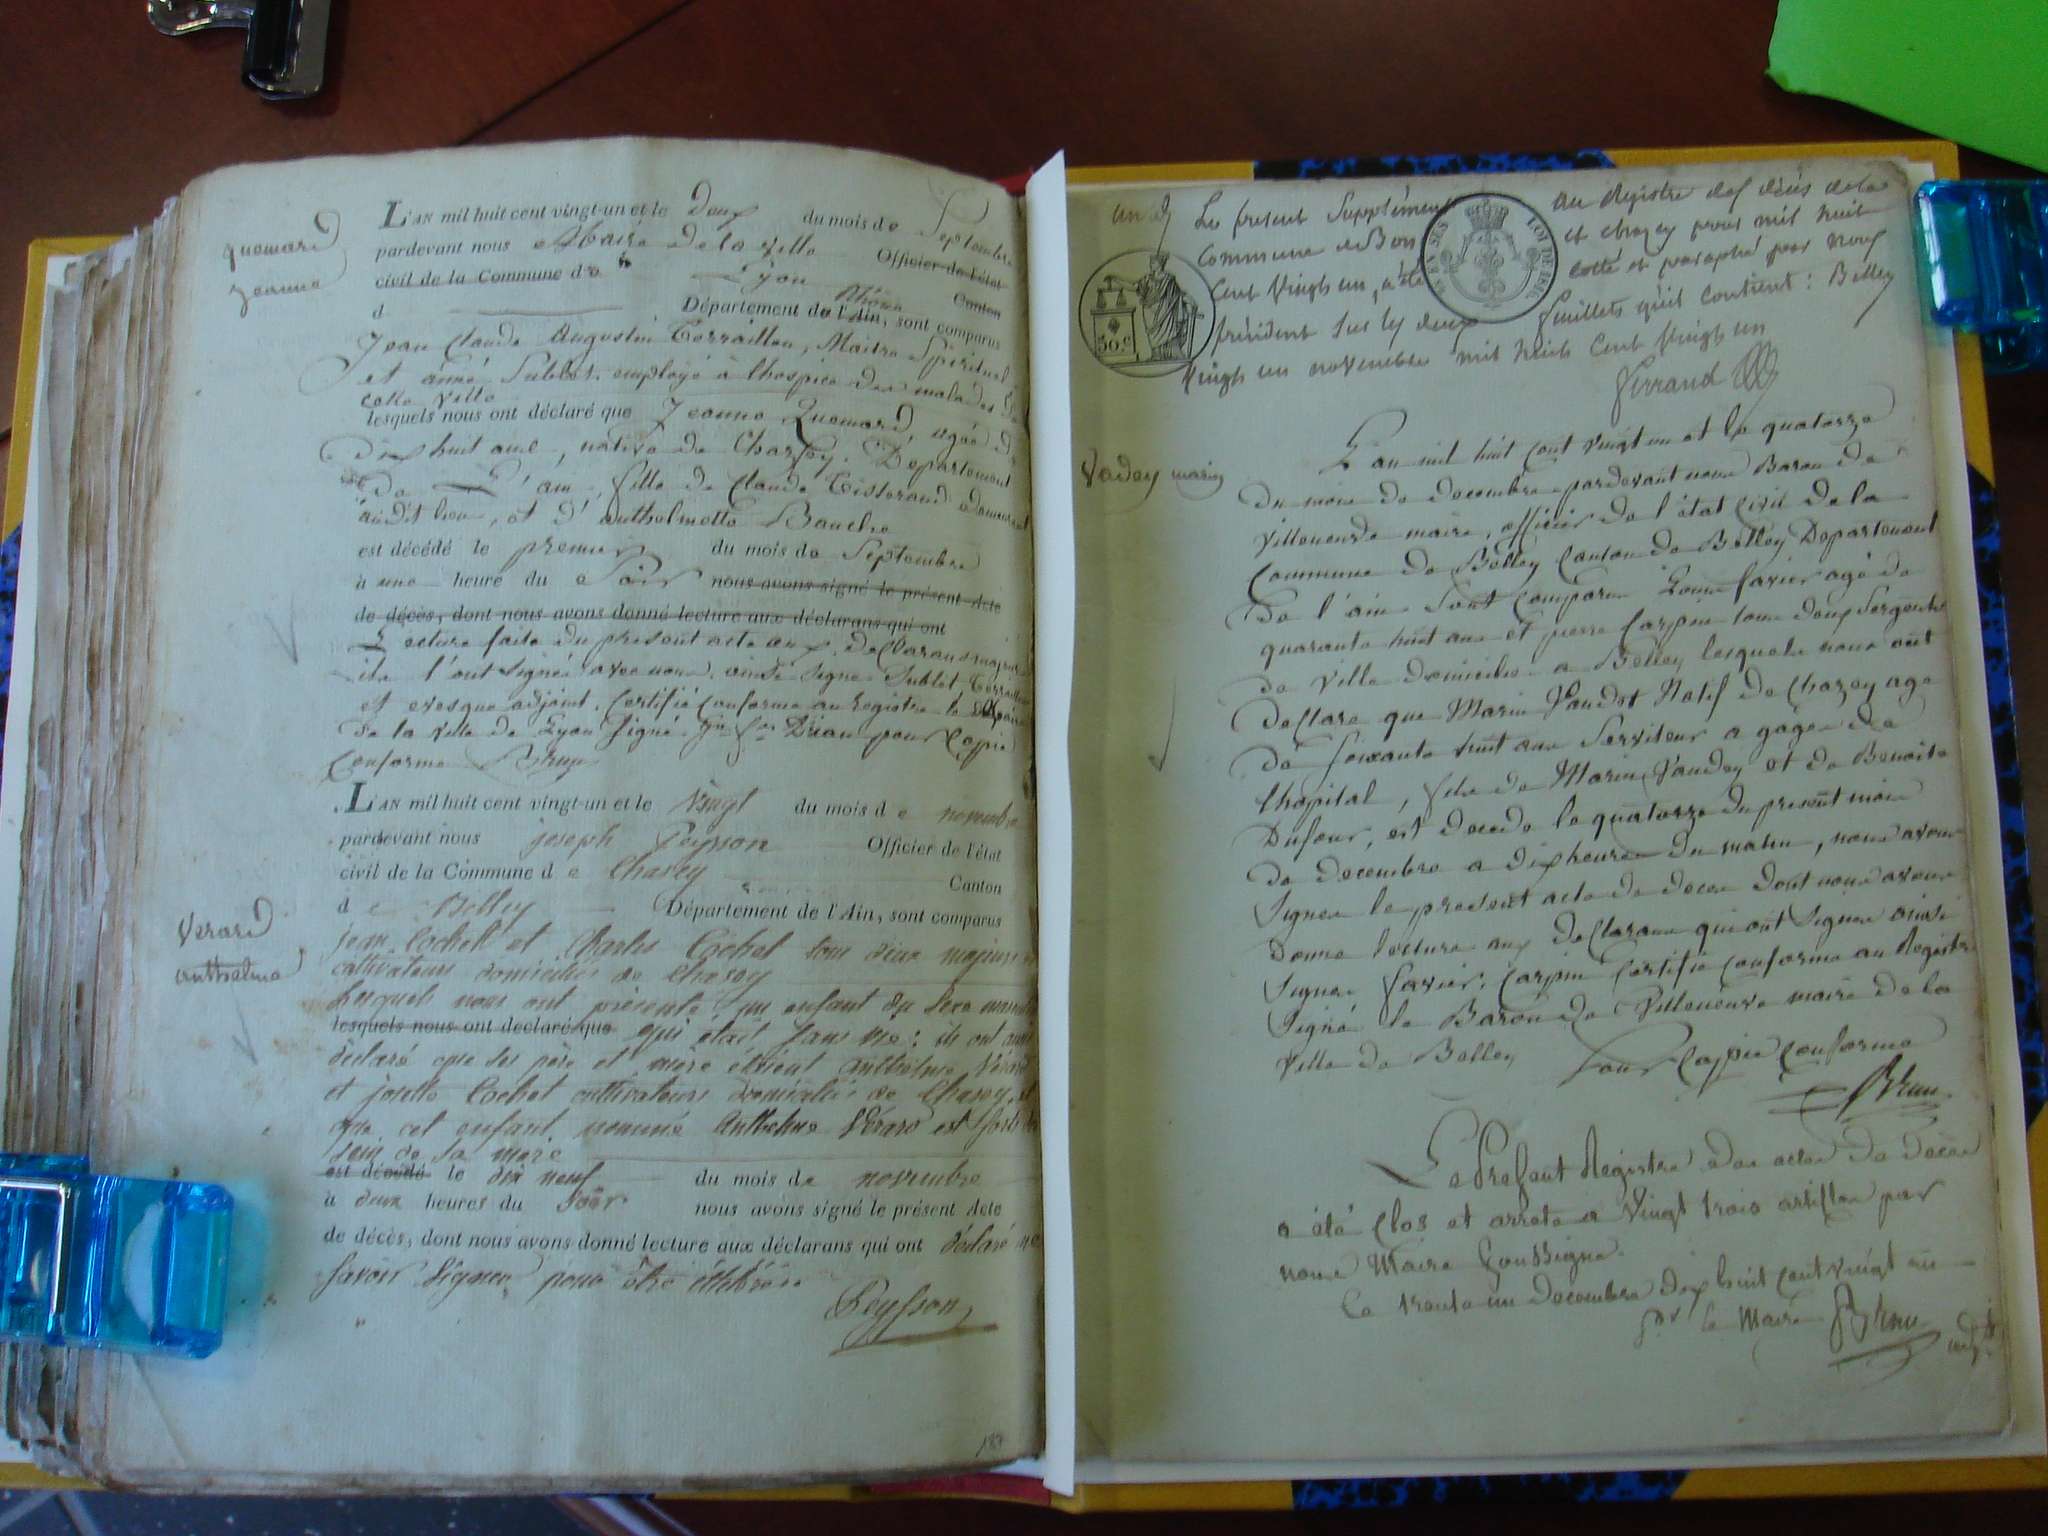 quemard
jeanne
L'AN mil huit cent vingt-un et le Deux du mois de Septembre
pardevant nous Maire de la ville Officier de l'état
civil de la Commune de Lyon Canton
d Rhône Département de l'Ain, sont comparus
Jean Claude Augustin Terraillon, Maitre Spirituel
et aimé Sublet employé à l'hospice des malades de
cette ville
lesquels nous ont déclaré que Jeanne Quemard, agée de
dix huit ans, native de Chazey, Departement
de L'ain, fille de Claude Tisserand demeurant
audit lieu, et d'anthelmette Bauche
est décédé le premier du mois de Septembre
à une heure du Soir nous avons signé le présent Acte
de décès, dont nous avons donné lecture aux déclarans qui ont
Lecture faite du present acte aux declarans majeurs
ils l'ont signé avec nous. ainsi signé Sublet, Terraillon
et evesque adjoint. Certifié conforme au registre le Maire
de la ville de Lyon signé pour Copie
conforme Brun
L'AN mil huit cent vingt-un et le vingt du mois de novembre
pardevant nous joseph Peysson Officier de l'état
civil de la Commune de Chasey Canton
de Belley Département de l'Ain, sont comparus
Verard
anthelme
jean Cochet et Charles Cochet tous deux majeurs et
cultivateurs domiciliés de Chasey
lesquels nous ont présenté un enfant du sexe masculin
lesquels nous ont déclaré que qui était sans vie: ils ont ainsi
déclaré que ses père et mère étoient anthelme Vérard
et josette Cochet cultivateurs domiciliés de Chasey, et
que cet enfant nommé Anthelme Vérard est sorti du
sein de sa mère
est décédé le dix neuf du mois de novembre
à deux heures du soir nous avons signé le présent Acte
de décès, dont nous avons donné lecture aux déclarans qui ont déclaré ne
savoir signer, pour être illitérés
Peysson
187
Le present Supplément au Registre des décès de la
Commune de Bons et chazey pour mil huit
cent vingt un, a été cotté et paraphé par nous
président sur les deux feuillets qu'il contient: Belley
vingt un novembre mil huit cent vingt un
Ferrand
50.c
LOI DE 1816
Vadey marin
L'an mil huit cent vingt un et le quatorze
du mois de decembre pardevant nous Baron de
Villeneuve maire, officier de l'état civil de la
Commune de Belley Canton de Belley Departement
de l'ain Sont comparu Louis favier agé de
quarante huit ans et pierre Carpin tous deux Sergents
de ville domicilies a Belley lesquels nous ont
declare que Marin Vaudet Natif de Chazey age
de soixante huit ans Serviteur a gages de
l'hopital, fils de Marin Vaudey et de Benoite
Dufour, est decede le quatorze du present mois
de decembre a dix heures du matin, nous avons
signer le present acte de deces dont nous avons
donne lecture aux declarans qui ont signer ainsi
signer favier; Carpin Certifie conforme au Registre
signé le Baron de Villeneuve maire de la
ville de Belley Pour Copie conforme
Brun
Le Present Registre des actes de décès
a été clos et arrete a vingt trois articles par
nous Maire Soussigné
Ce trente un Decembre dix huit cent vingt un
pr le Maire Brun adjt